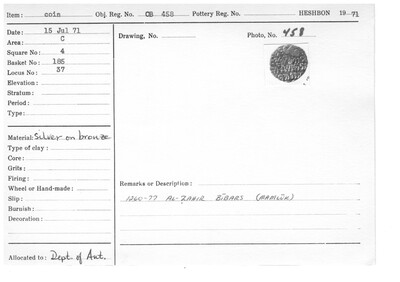 Item: coin Obj. Reg. No. OB 458 Pottery Reg. No. HESHBON 1971
Date: 15 Jul 71
Area: C
Square No: 4
Basket No: 185
Locus No: 37
Elevation:
Stratum:
Period:
Type:
Drawing, No.
Photo, No. 458
Material: Silver on bronze
Type of clay:
Core:
Grits:
Firing:
Wheel or Hand-made:
Slip:
Burnish:
Decoration:
Allocated to: Dept of Ant.
Remarks or Description:
1260-77 AL-ZAHIR BIBARS (MAMLUK)